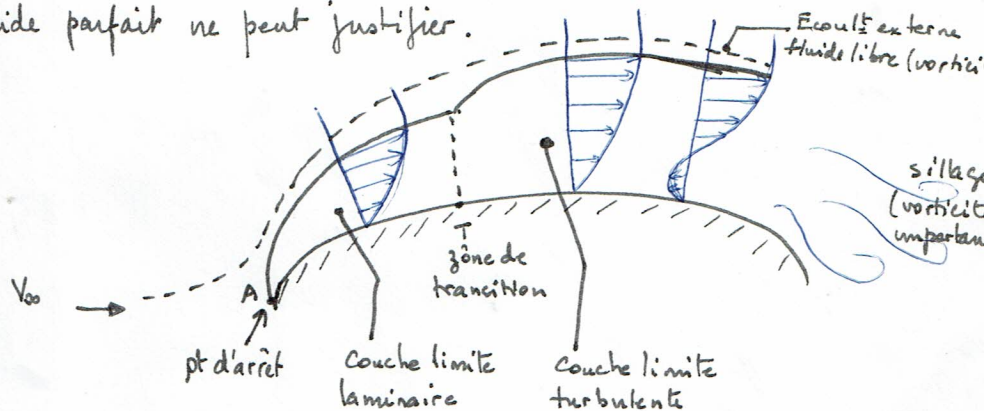 ide parfait ne peut justifier.
Ecoult externe
fluide libre (vortici
sillage
(vorticit
importan
V∞
A
T
zône de
trancition
pt d'arrêt
Couche limite
laminaire
Couche limite
turbulente